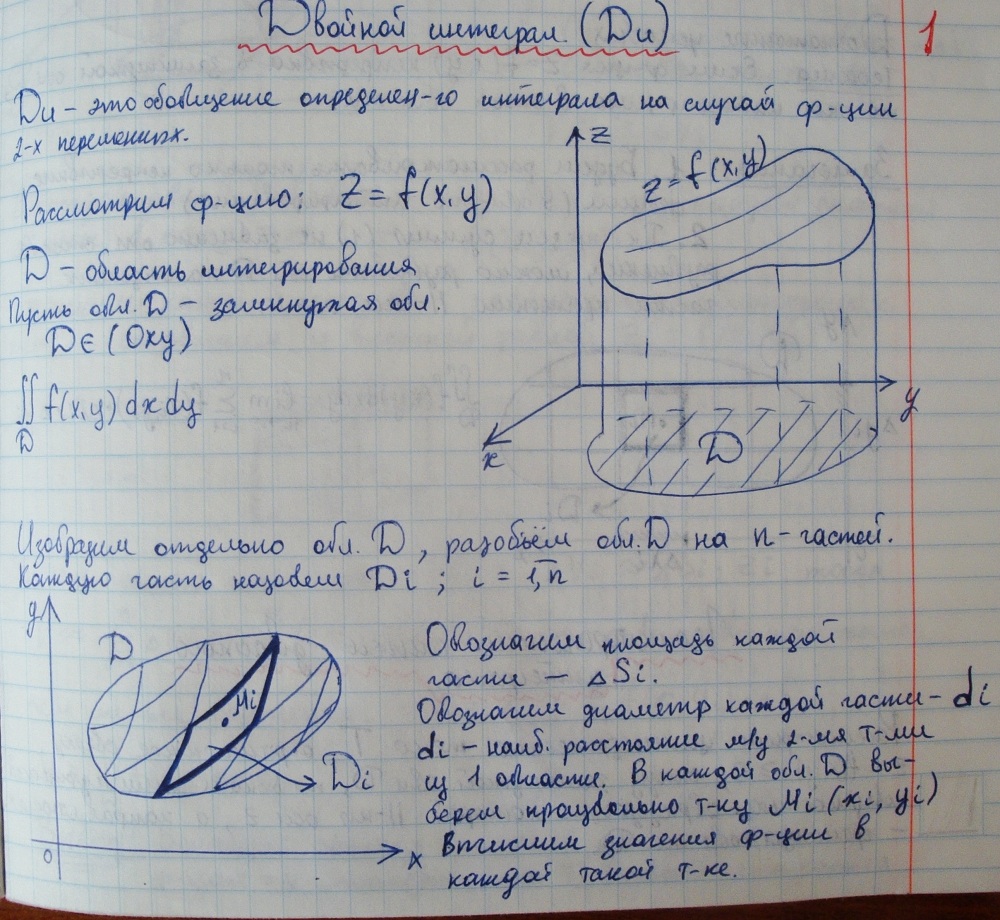 Двойной интеграл (Ди)
1
Ди – это обобщение определен-го интеграла на случай ф-ции
2-х переменных.
Рассмотрим ф-цию: Z = f(x,y)
z
z = f(x,y)
D – область интегрирования
Пусть обл. D – замкнутая обл.
D ∈ (Oxy)
∬ f(x,y) dx dy
D
y
x
D
Изобразим отдельно обл. D, разобьём обл. D на n-частей.
Каждую часть назовем Di ; i = 1,n̅
y
D
Mi
Di
0
x
Обозначим площадь каждой
части – ΔSi.
Обозначим диаметр каждой части – di
di – наиб. расстояние м/у 2-мя т-ми
из 1 области. В каждой обл. D вы-
берем произвольно т-ку Mi (xi, yi)
Вычислим значения ф-ции в
каждой такой т-ке.